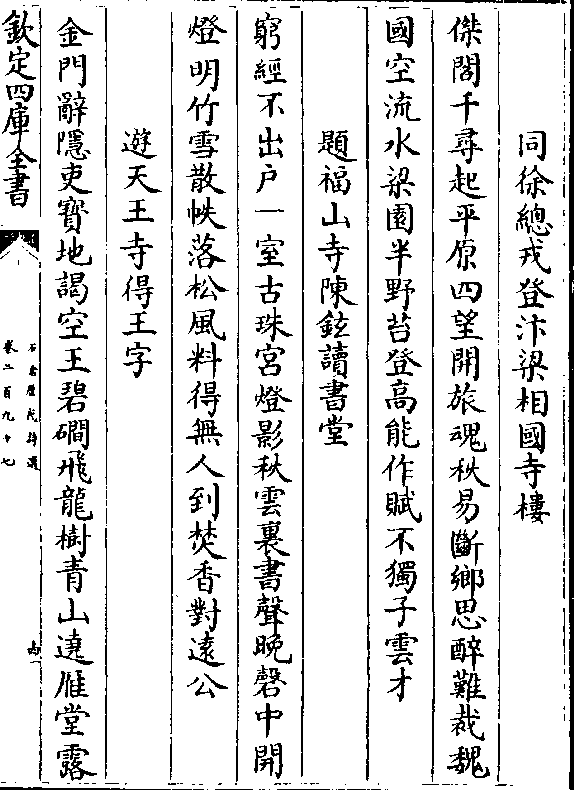 同徐總戎登汴梁相國寺樓
傑閣千尋起平原四望開旅魂秋易斷鄉思醉難裁魏
國空流水梁園半野苔登高能作賦不獨子雲才
題福山寺陳鉉讀書堂
窮經不出户一室古珠宮燈影秋雲裏書聲晚磬中開
燈明竹雪散帙落松風料得無人到焚香對遠公
遊天王寺得王字
金門辭隱吏寶地謁空王碧磵飛龍樹青山遶雁堂露
欽定四庫全書
石倉歷代詩選
卷二百九十七